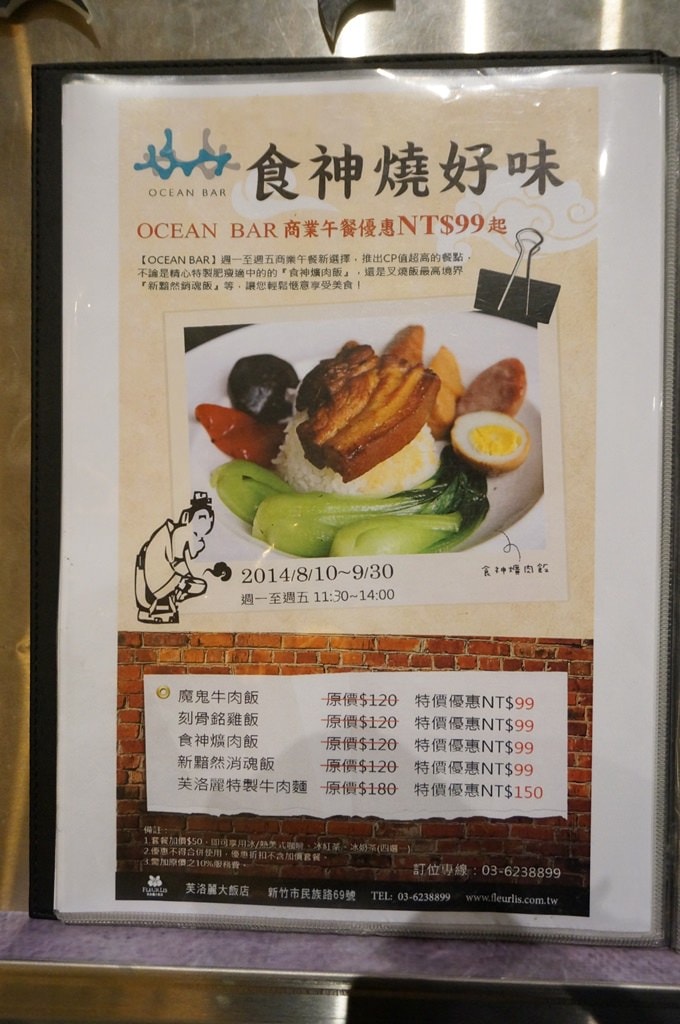 OCEAN BAR
食神燒好味
OCEAN BAR 商業午餐優惠NT$99起
【OCEAN BAR】週一至週五商業午餐新選擇，推出CP值超高的餐點，
不論是精心特製肥瘦適中的的『食神爌肉飯』，還是叉燒飯最高境界
『新黯然銷魂飯』等，讓您輕鬆愜意享受美食！
食神爌肉飯
2014/8/10~9/30
週一至週五 11:30~14:00
魔鬼牛肉飯 原價$120 特價優惠NT$99
刻骨銘雞飯 原價$120 特價優惠NT$99
食神爌肉飯 原價$120 特價優惠NT$99
新黯然消魂飯 原價$120 特價優惠NT$99
芙洛麗特製牛肉麵 原價$180 特價優惠NT$150
備註：
1.套餐加價$50，即可享用冰/熱美式咖啡、冰紅茶、冰奶茶(四選一)
2.優惠不得合併使用，優惠折扣不含加價套餐。
3.需加原價之10%服務費。
訂位專線：03-6238899
FLEURLIS
芙洛麗大飯店 新竹市民族路69號 TEL: 03-6238899 www.fleurlis.com.tw